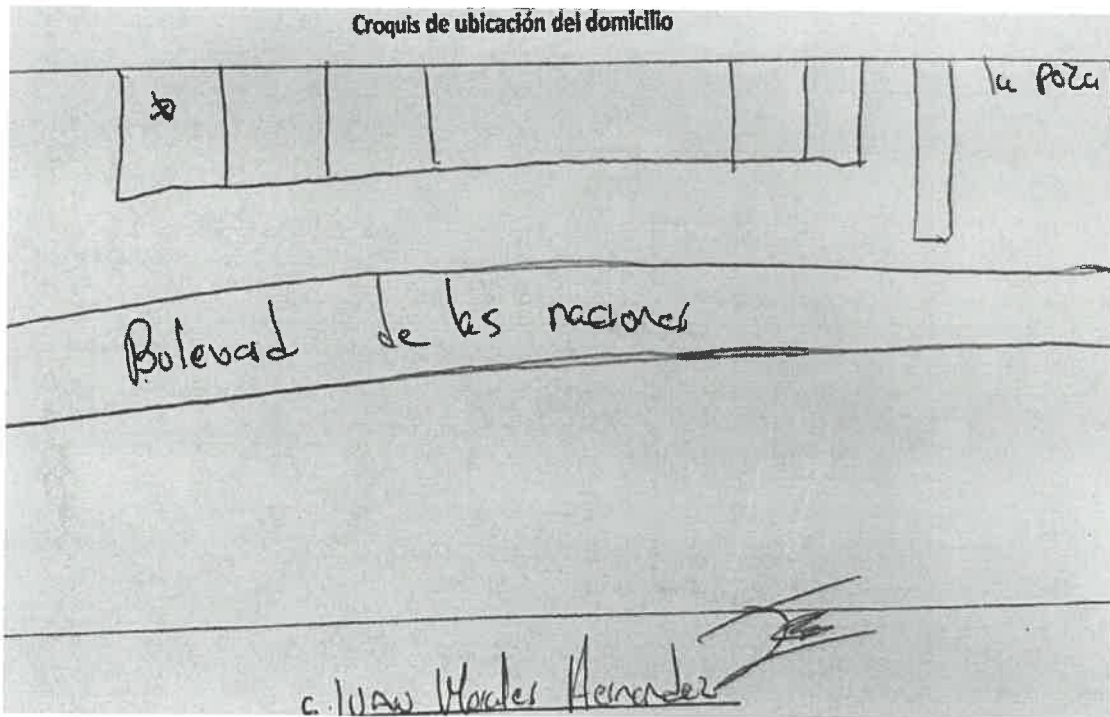 Croquis de ubicación del domicilio
la poza
Bolevard de las naciones
c. JUAN Morales Hernandez